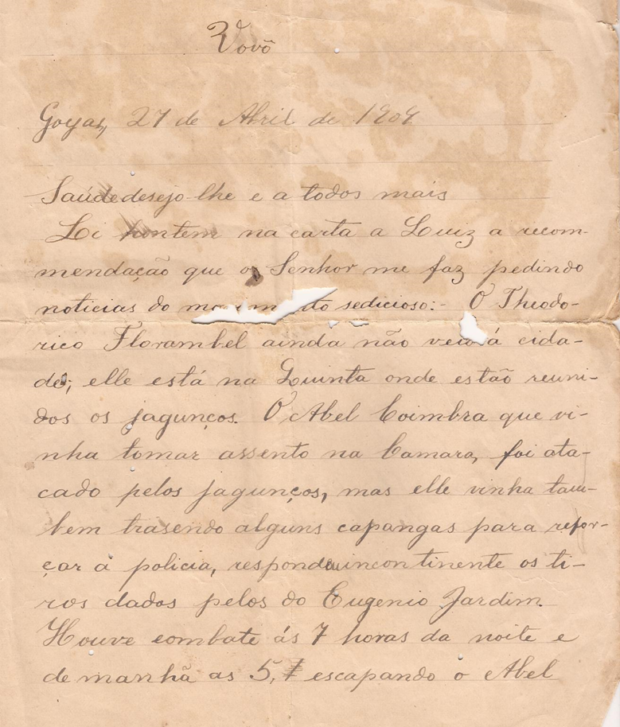 Vovô
Goyaz, 27 de Abril de 1909
Saúde desejo-lhe e a todos mais
Li hontem na carta a Luiz a recom-
mendação que o Senhor me faz pedindo
noticias do sedicioso:- O Theodo-
rico Florambel ainda não veio á cida-
de; elle está na Quinta onde estão reuni-
dos os jagunços. O Abel Coimbra que vi-
nha tomar assento na Camara, foi ata-
cado pelos jagunços, mas elle vinha tam-
bem trasendo alguns capangas para refor-
çar a policia, incontinente os ti-
ros dados pelos do Eugenio Jardim.
Houve combate ás 7 horas da noite e
de manhã as 5, escapando o Abel